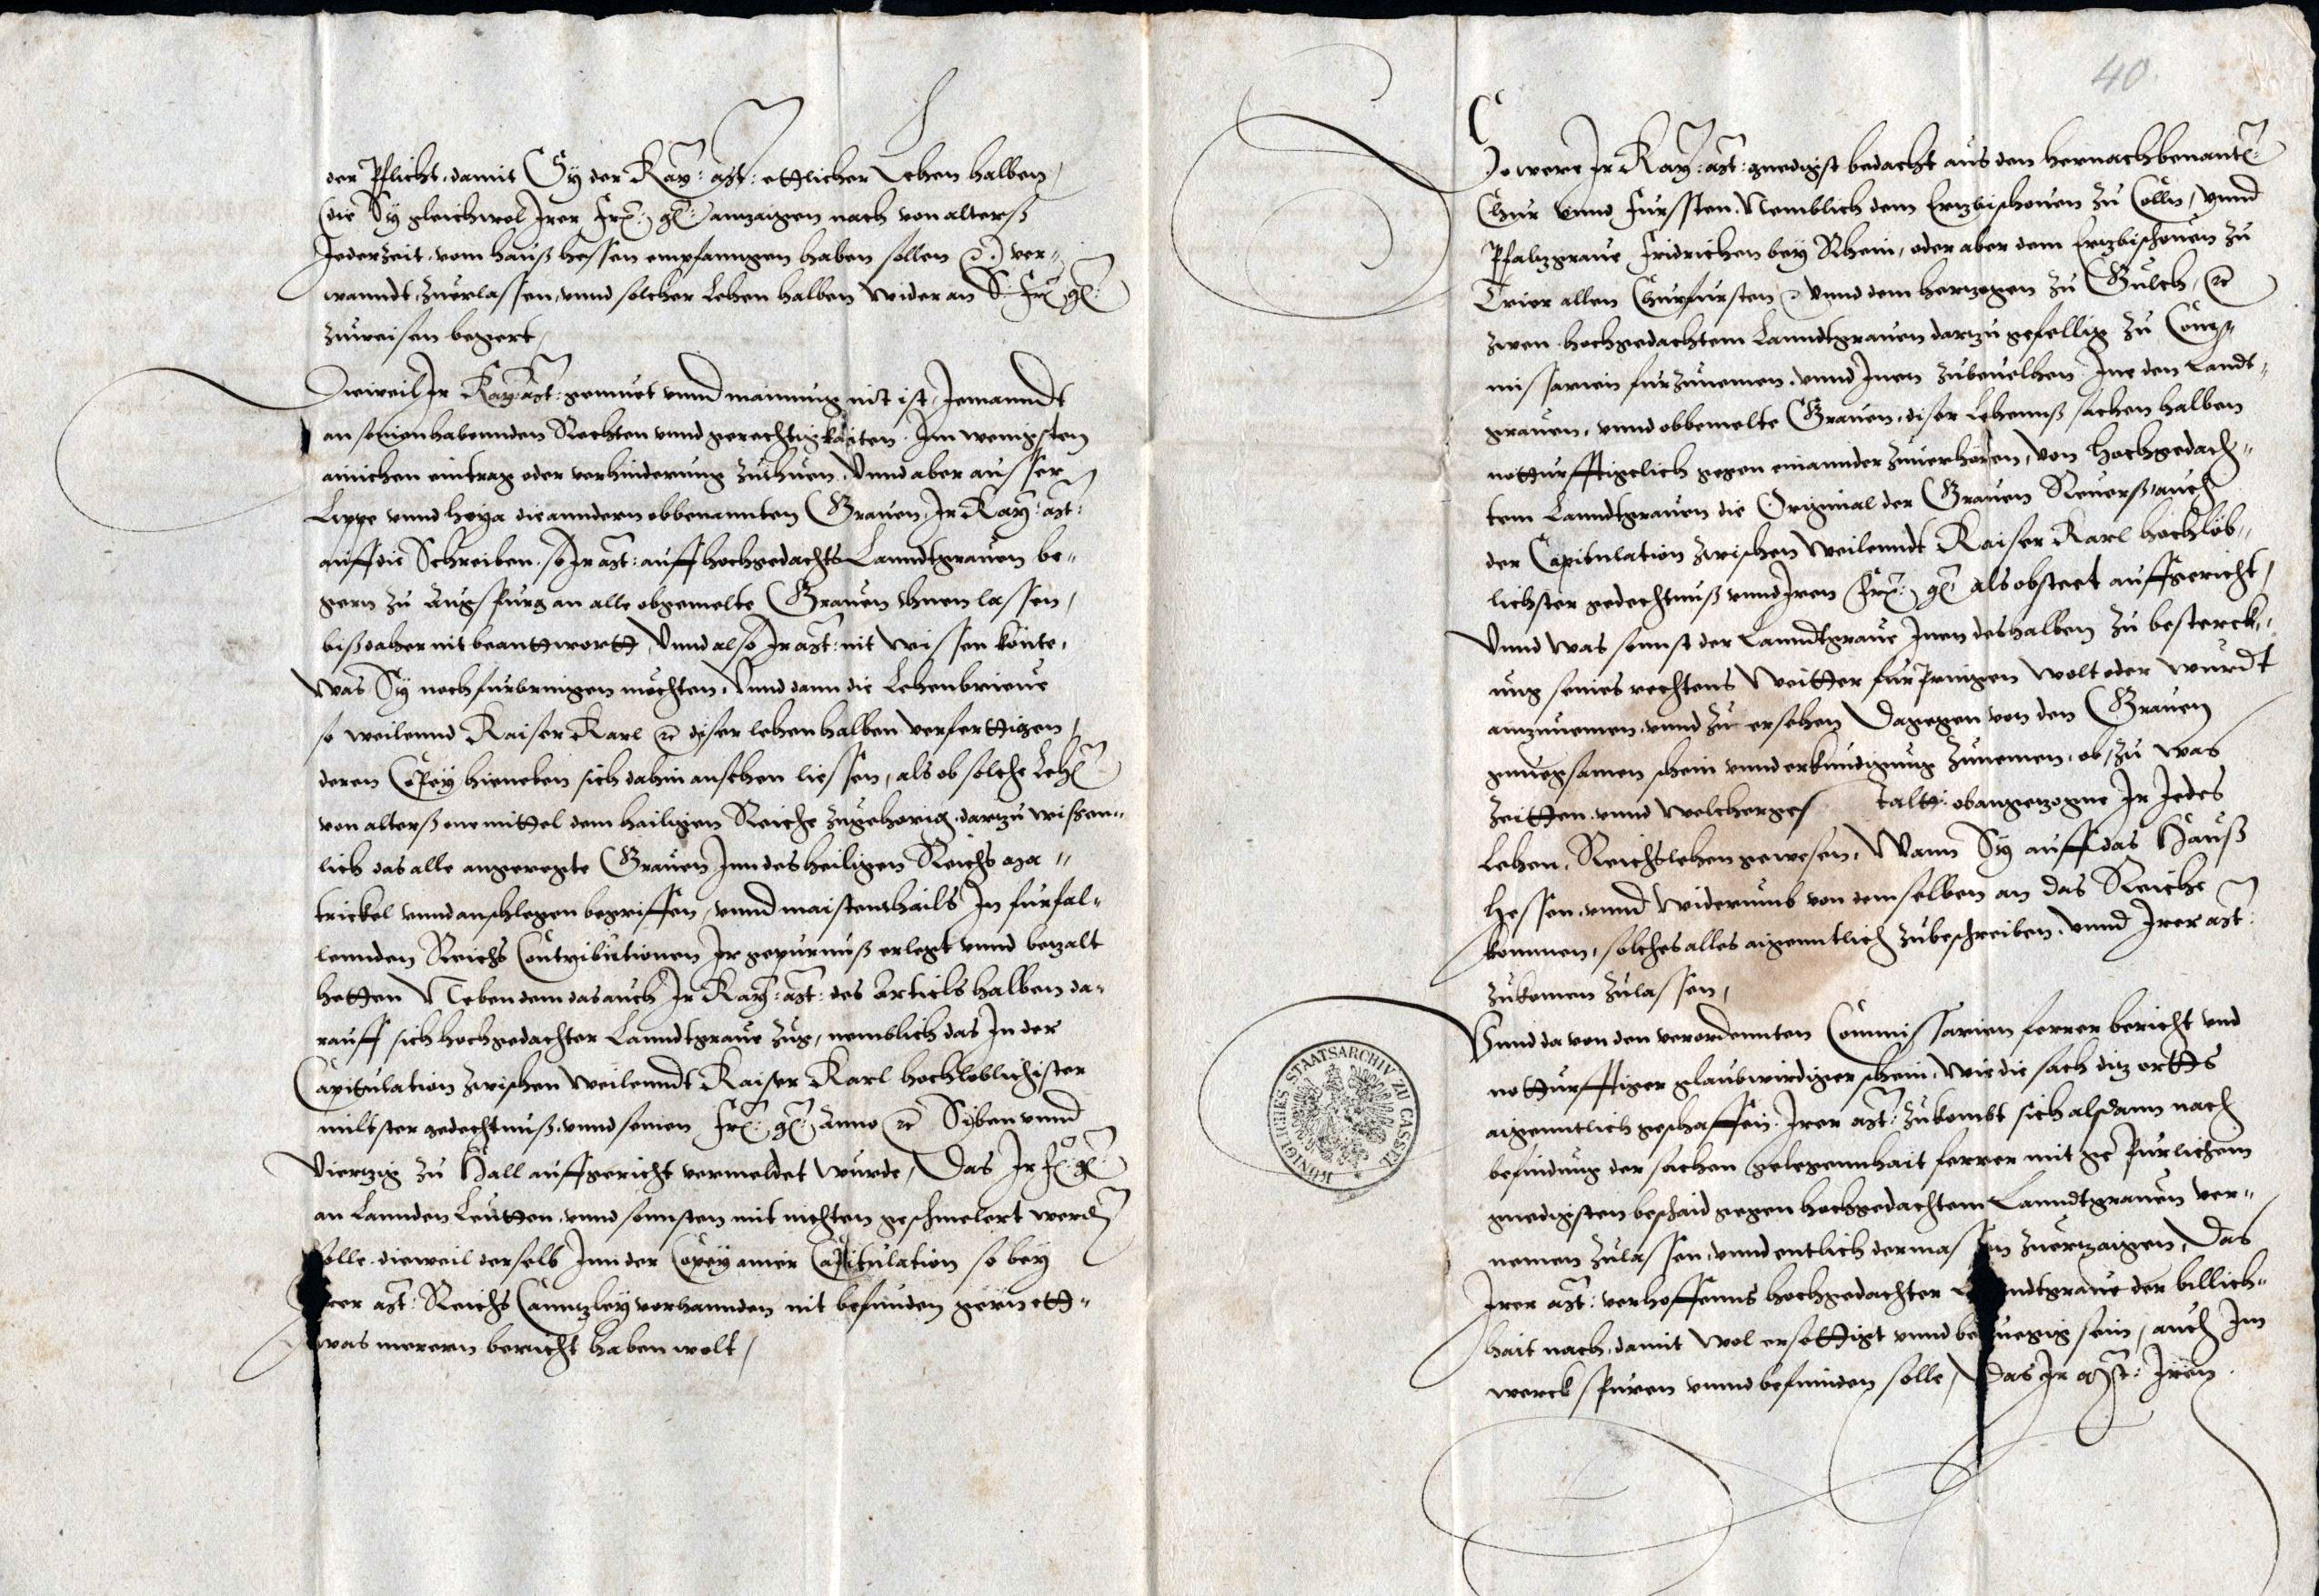 der Pflicht, damit Sy der Kay: Mt: ettlicher Lehen halben,
(die Sy gleichwol Irer Fr: g: anzaigen nach von alterß
Jederzeit, vom hauß Hessen empfanngen haben sollen ) ver-
wanndt, zuerlassen, vnnd solcher Lehen halben wider an S: Fr: g:
zuweisen begert,
Dieweil Ir Kay: Mt: gemuet vnnd mainung nit ist, Jemanndt
an seinen habennden Rechten vnnd gerechtigkaiten, Im wenigsten
ainichen eintrag oder verhinderung zuthuen, Vnnd aber ausser
Lippe vnnd Hoya die anndern obbenannten Grauen, Ir Kay: Mt:
auff die Schreiben, so Ir Mt: auff hochgedachts Lanndtgrauen be-
gern zu Augspurg an alle obgemelte Grauen thuen lassen,
bißdaher nit beanttwortt, Vnnd also Ir Mt: nit wissen könte,
was Sy noch furbringen möchten, Vnnd dann die Lehenbrieue
so weilennd Kaiser Karl etc diser lehen halben verferttigen,
deren Copey hieneben sich dahin ansehen liessen, als ob solche Lehen
von alterß one mittel dem hailigen Reiche zugehorig, dartzu wissen-
lich das alle angeregte Grauen Inn des heiligen Reichs Ma-
trickel vnnd anschlegen begriffen, vnnd maistenthails In furfal-
lennden Reichs Contributionen Ir gepurnuß erlegt vnnd betzalt
hetten Neben dem das auch Ir Kay: Mt: des Articls halben da-
rauff sich hochgedachter Lanndtgraue zug, nemblich das In der
Capitulation zwischen weilenndt Kaiser Karl hochloblichister
miltster gedechtnuß, vnnd seinen Fr: g: Anno etc Syben vnnd
Viertzig zu Hall auffgericht vermeldet wurde, Das Ir F: g:
an Lannden Leutten, vnnd sonnsten mit nichten geschmelert werden
solle, dieweil derselb Inn der Copey ainer Capitulation so bey
Irer Mt: Reichs Canntzley vorhannden nit befunden, gern ett-
was merern bericht haben wolt,
40
So were Ir Kay: Mt: gnedigist bedacht aus den hernachbenanten
Chur vnnd Fursten, Nemblich dem Ertzbischouen zu Cölln, vnnd
Pfaltzgraue Fridrichen bey Rhein, oder aber dem Ertzbischouen zu
Trier allen Churfursten etc vnnd dem Hertzogen zu Gulch, etc
zwen hochgedachtem Lanndtgrauen dartzu gefellig zu Com-
missarien furzunemen, vnnd Inen zubeuelhen Ine den Landt-
grauen, vnnd obbemelte Grauen, diser Lehennß sachen halben
notturfftigclich gegen einannder zuuerhören, von hochgedach-
tem Lanndtgrauen die Original der Grauen Reuerß, auch
der Capitulation zwischen weilenndt Kaiser Karl hochlöb-
lichster gedechtnuß vnnd Iren Fr: g: als obsteet auffgericht,
Vnnd was sonnst der Lanndtgraue Inen deshalben zu besterck-
ung seines rechtens weitter furpringen wolt oder wurdt
anzunemen, vnnd zu ersehen Dagegen von den Grauen
gnuegsamen schein vnnd erkundigung zunemen, ob, zu was
Zeitten, vnnd welcherges talt: obangezogne Ir Jedes
Lehen, Reichslehen gewesen, Wann Sy auff das Hauß
Hessen, vnnd widerumb von demselben an das Reiche
kommen, solches alles aigenntlich zubeschreiben, vnnd Irer Mt:
zukomen zulassen,
Vnnd da von den verordennten Commissarien ferrer bericht vnd
notturfftiger glaubwirdiger schein, wie die sach ditz ortts
aigenntlich geschaffen, Irer Mt: zukombt sich alsdann nach
befindung der sachen gelegennhait ferrer mit gepurlichem
gnedigsten beschaid gegen hochgedachtem Lanndtgrauen ver-
nemen zulassen, vnnd entlich dermassen zuertzaigen, Das
Irer Mt: verhoffenns hochgedachter Lanndtgraue der billich-
hait nach, damit wol ersettigt vnnd benuegig sein, auch Im
werck spuren vnnd befinden solle, Das Ir Mt: Iren
KÖNIGLICHES STAATSARCHIV ZU CASSEL